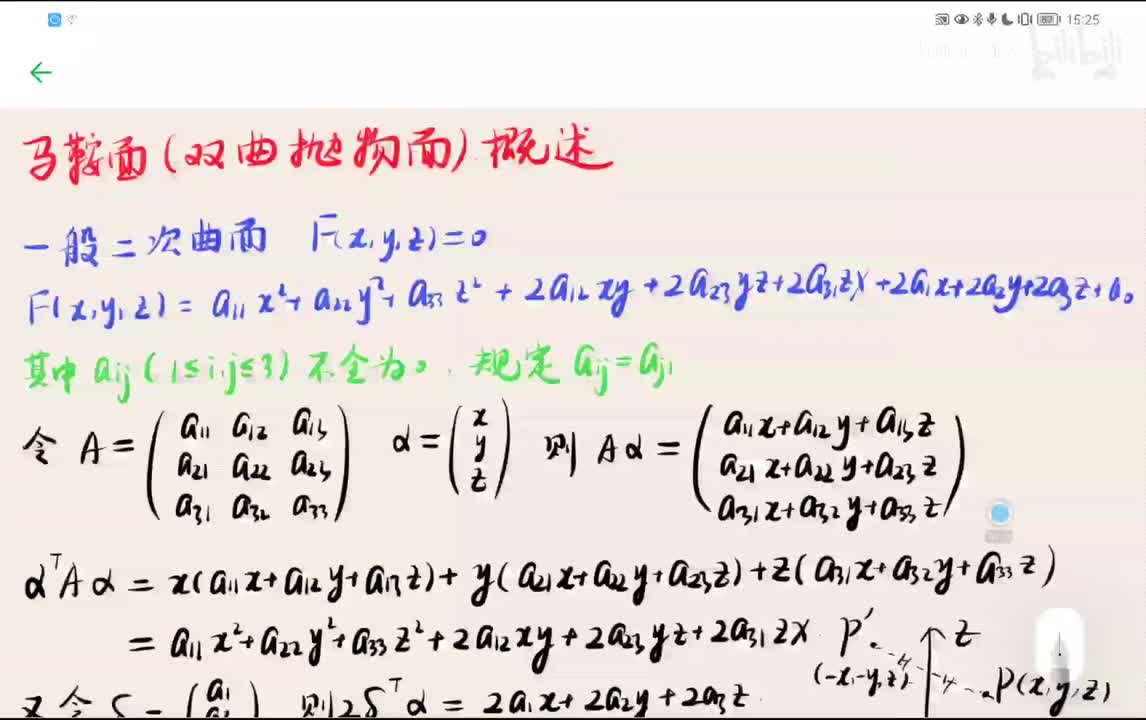 15:25
bilibili
马鞍面(双曲抛物面)概述
一般二次曲面 F(x,y,z)=0
F(x,y,z) = a₁₁x²+a₂₂y²+a₃₃z²+2a₁₂xy+2a₂₃yz+2a₃₁zx+2a₁x+2a₂y+2a₃z+a₀
其中 aᵢⱼ(1≤i,j≤3)不全为0,规定 aᵢⱼ=aⱼᵢ
令 A = (a₁₁ a₁₂ a₁₃ α = (x 则 Aα = (a₁₁x+a₁₂y+a₁₃z
a₂₁ a₂₂ a₂₃ y a₂₁x+a₂₂y+a₂₃z
a₃₁ a₃₂ a₃₃) z) a₃₁x+a₃₂y+a₃₃z)
αᵀAα = x(a₁₁x+a₁₂y+a₁₃z)+y(a₂₁x+a₂₂y+a₂₃z)+z(a₃₁x+a₃₂y+a₃₃z)
= a₁₁x²+a₂₂y²+a₃₃z²+2a₁₂xy+2a₂₃yz+2a₃₁zx P′ z
(-x,-y,z) P(x,y,z)
又令 δ = (a₁ 则 2δᵀα = 2a₁x+2a₂y+2a₃z